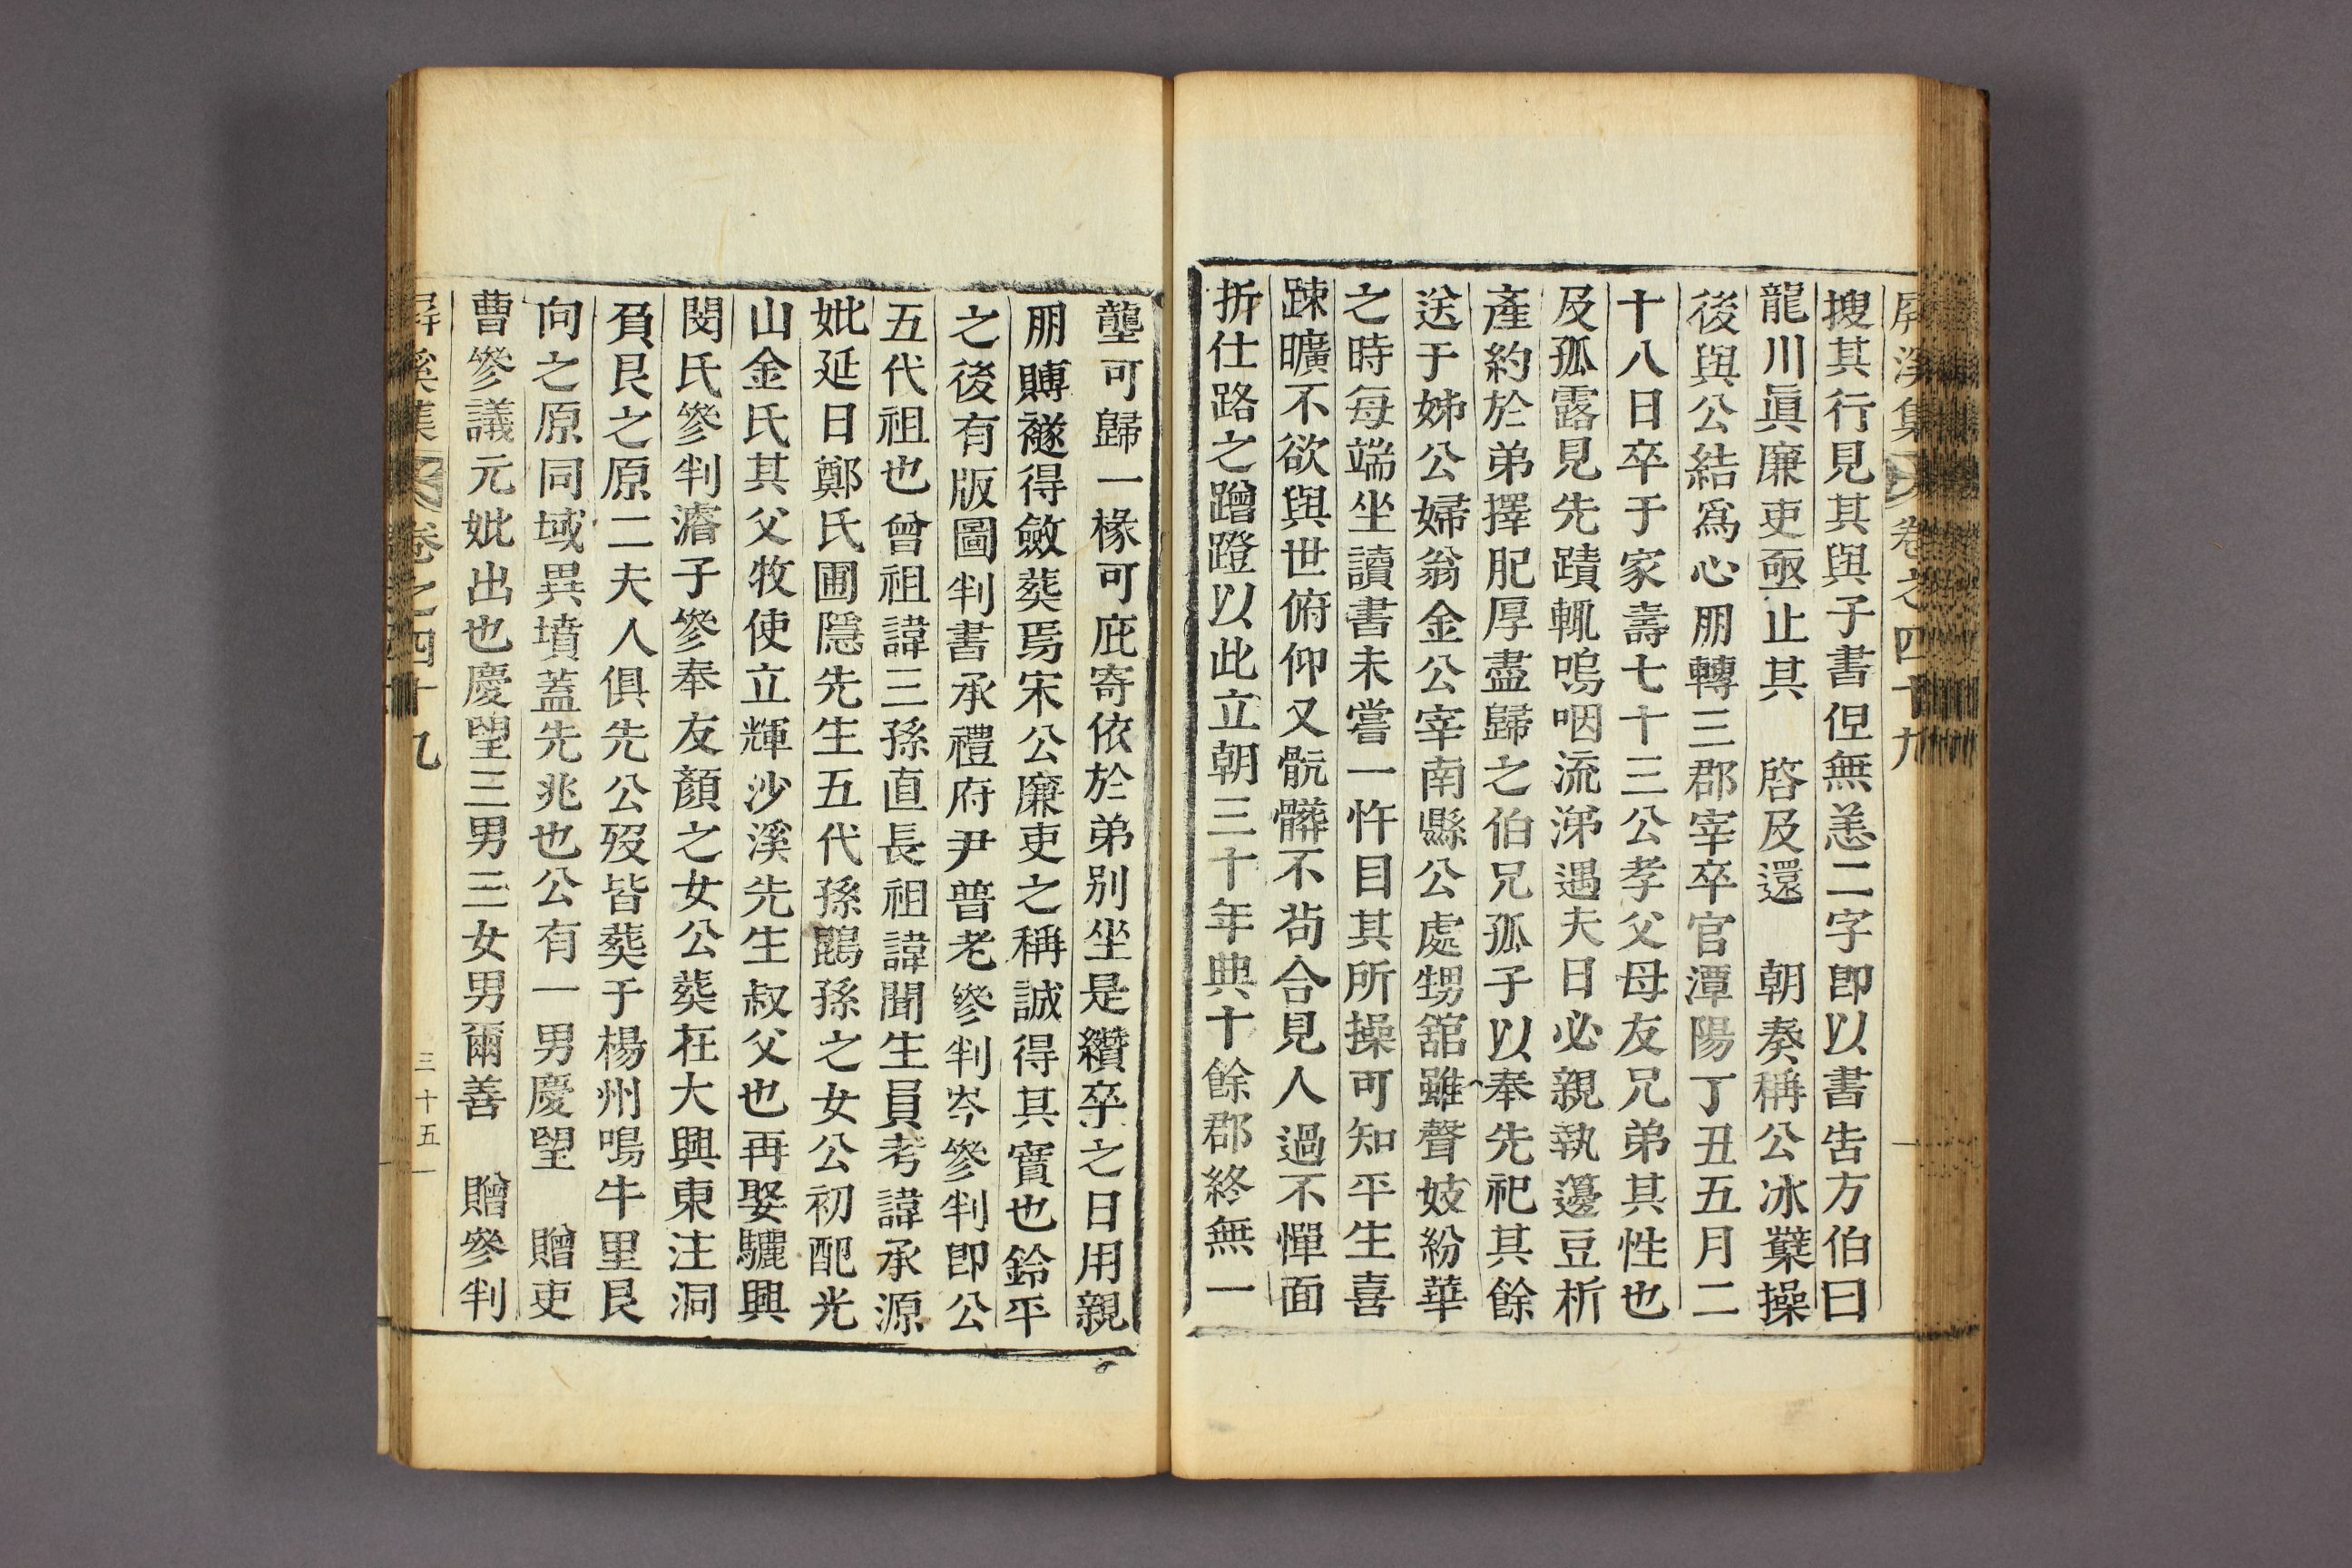 屏溪集 卷之四十九
搜其行見其與子書但無恙二字卽以書告方伯曰
龍川眞廉吏亟止其 啓及還 朝奏稱公冰糵操
後與公結爲心朋轉三郡宰卒官潭陽丁丑五月二
十八日卒于家壽七十三公孝父母友兄弟其性也
及孤露見先蹟輒嗚咽流涕遇夫日必親執籩豆析
產約於弟擇肥厚盡歸之伯兄孤子以奉先祀其餘
送于姊公婦翁金公宰南縣公處甥舘雖聲妓紛華
之時每端坐讀書未嘗一忤目其所操可知平生喜
踈曠不欲與世俯仰又骯髒不茍合見人過不憚面
折仕路之蹭蹬以此立朝三十年典十餘郡終無一
壟可歸一椽可庇寄依於弟別坐是纘卒之日用親
朋賻襚得斂葬焉宋公廉吏之稱誠得其實也鈴平
之後有版圖判書承禮府尹普老參判岑參判卽公
五代祖也曾祖諱三孫直長祖諱聞生員考諱承源
妣延日鄭氏圃隱先生五代孫鵾孫之女公初配光
山金氏其父牧使立輝沙溪先生叔父也再娶驪興
閔氏參判濬子參奉友顏之女公葬在大興東注洞
負艮之原二夫人俱先公歿皆葬于楊州鳴牛里艮
向之原同域異墳蓋先兆也公有一男慶望 贈吏
曹參議元妣出也慶望三男三女男爾善 贈參判
屏溪集 卷之四十九 三十五